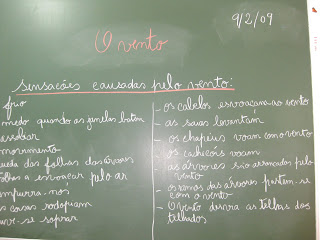 9/2/09
O vento
sensações causadas pelo vento:
frio
medo quando as janelas batem
assobiar
movimento
queda das folhas das árvores
folhas a esvoaçar pelo ar
empurra-nos
as coisas rodopiam
ouve-se soprar
- os cabelos esvoaçam ao vento
- as saias levantam
- os chapéus voam com o vento
- os cachecóis voam
- as árvores são arrancadas pelo
vento
- os ramos das árvores partem-se
com o vento
- O vento as telhas dos
telhados